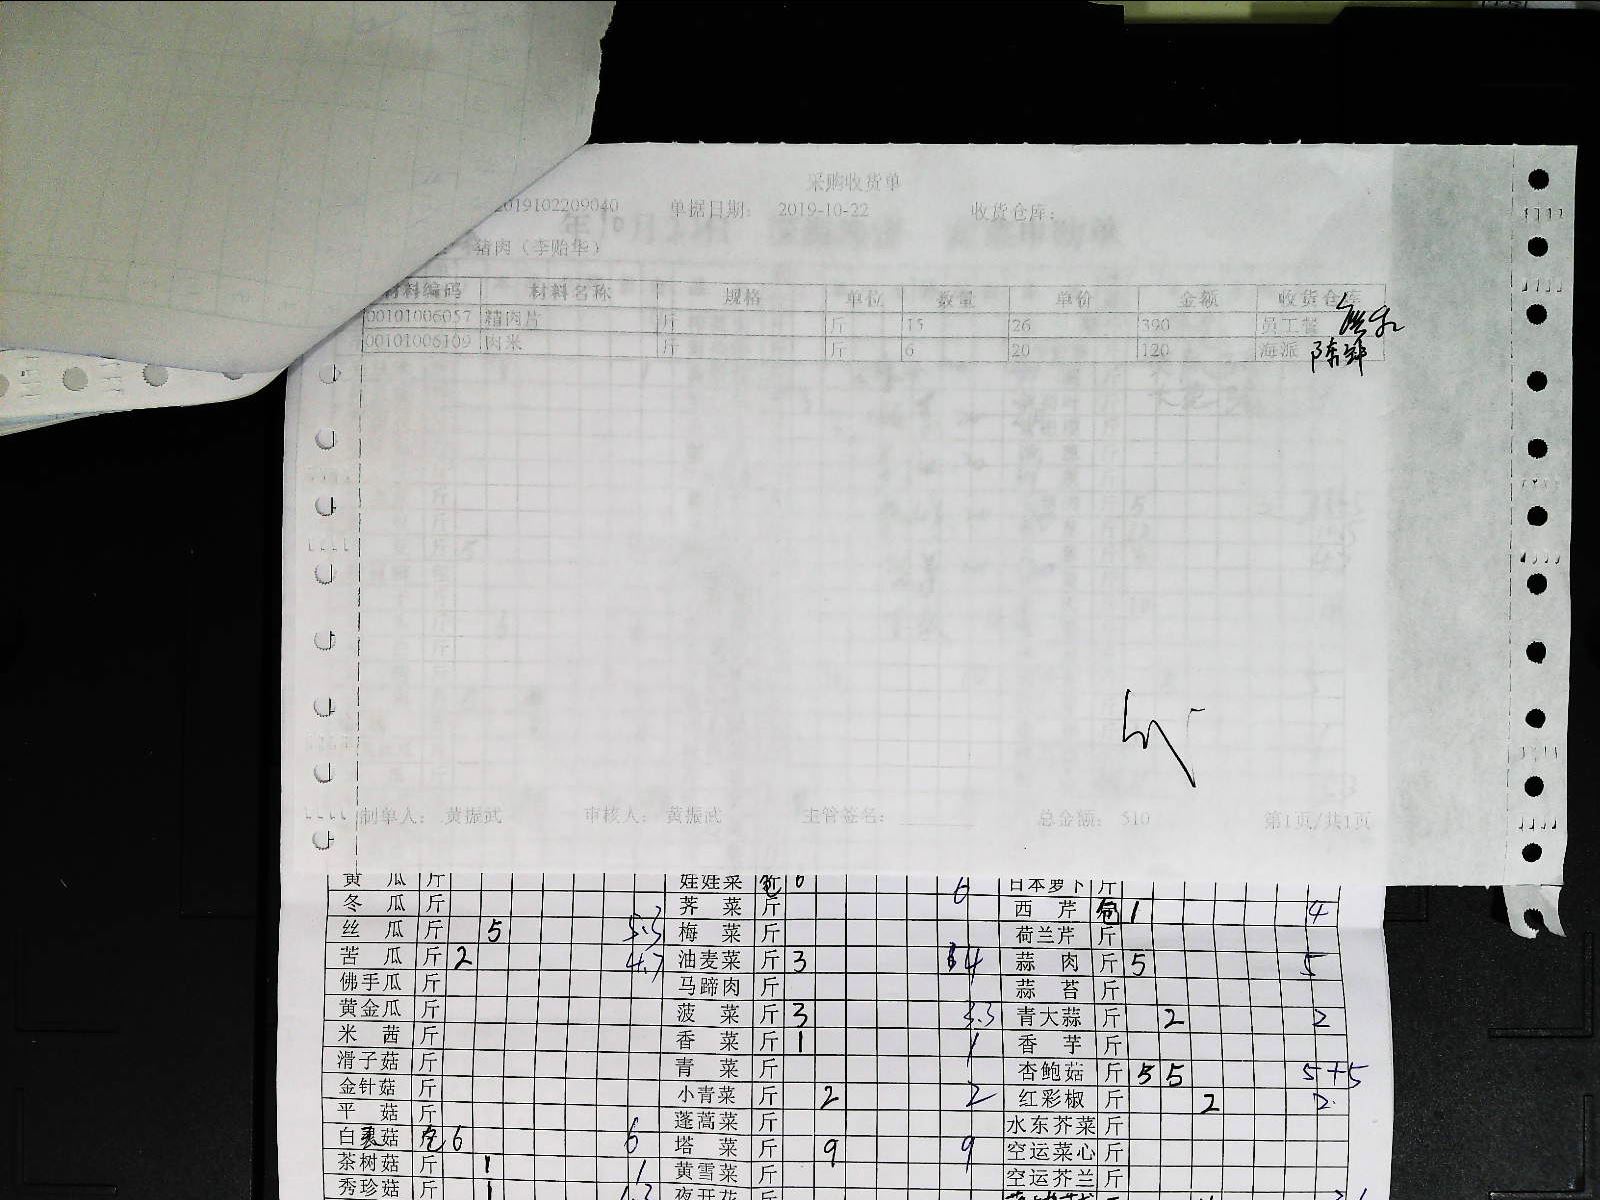 采购收货单
2019102209040 单据日期： 2019-10-22 收货仓库：
猪肉（李贻华）
材料编码 材料名称 规格 单位 数量 单价 金额 收货仓库
00101006057 精肉片 斤 斤 15 26 390 员工餐
00101006109 肉米 斤 斤 6 20 120 海派
制单人： 黄振武 审核人： 黄振武 主管签名： 总金额： 510 第1页/共1页
黄 瓜 斤 娃娃菜 包 6 6 日本萝卜 斤
冬 瓜 斤 荠 菜 斤 西 芹 包 1 4
丝 瓜 斤 5 5.3 梅 菜 斤 荷兰芹 斤
苦 瓜 斤 2 4.7 油麦菜 斤 3 4 蒜 肉 斤 5 5
佛手瓜 斤 马蹄肉 斤 蒜 苔 斤
黄金瓜 斤 菠 菜 斤 3 3.3 青大蒜 斤 2 2
米 茜 斤 香 菜 斤 1 1 香 芋 斤
滑子菇 斤 青 菜 斤 杏鲍菇 斤 5 5 5+5
金针菇 斤 小青菜 斤 2 2 红彩椒 斤 2 2
平 菇 斤 蓬蒿菜 斤 水东芥菜 斤
白 菇 包 6 6 塔 菜 斤 9 9 空运菜心 斤
茶树菇 斤 1 1 黄雪菜 斤 空运芥兰 斤
秀珍菇 斤 1 1.3 夜开花 斤